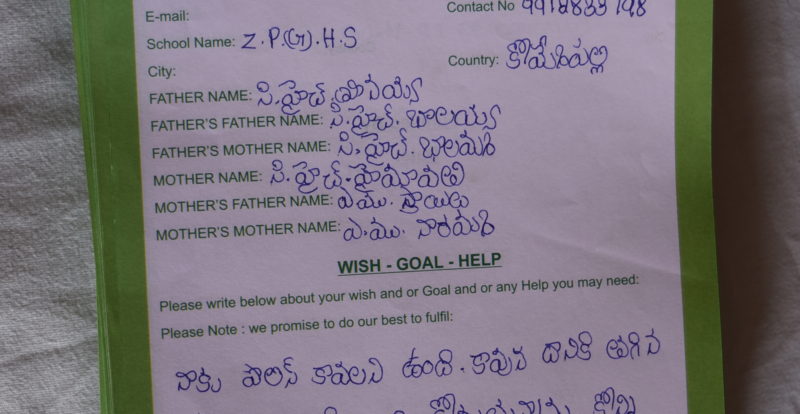 E-mail:
Contact No
School Name: Z.P.(G).H.S
City:
Country: కొమేరిపల్లి
FATHER NAME: సి.హైచ్.
FATHER'S FATHER NAME: సి.హైచ్. బాలయ్య
FATHER'S MOTHER NAME: సి.హైచ్.
MOTHER NAME: సి.హైచ్.హైమావతి
MOTHER'S FATHER NAME: ఎ.ము.
MOTHER'S MOTHER NAME: ఎ.ము.
WISH - GOAL - HELP
Please write below about your wish and or Goal and or any Help you may need:
Please Note : we promise to do our best to fulfil:
నాకు పొలిస్ కావలని ఉంది. కావున దానికి తగిన